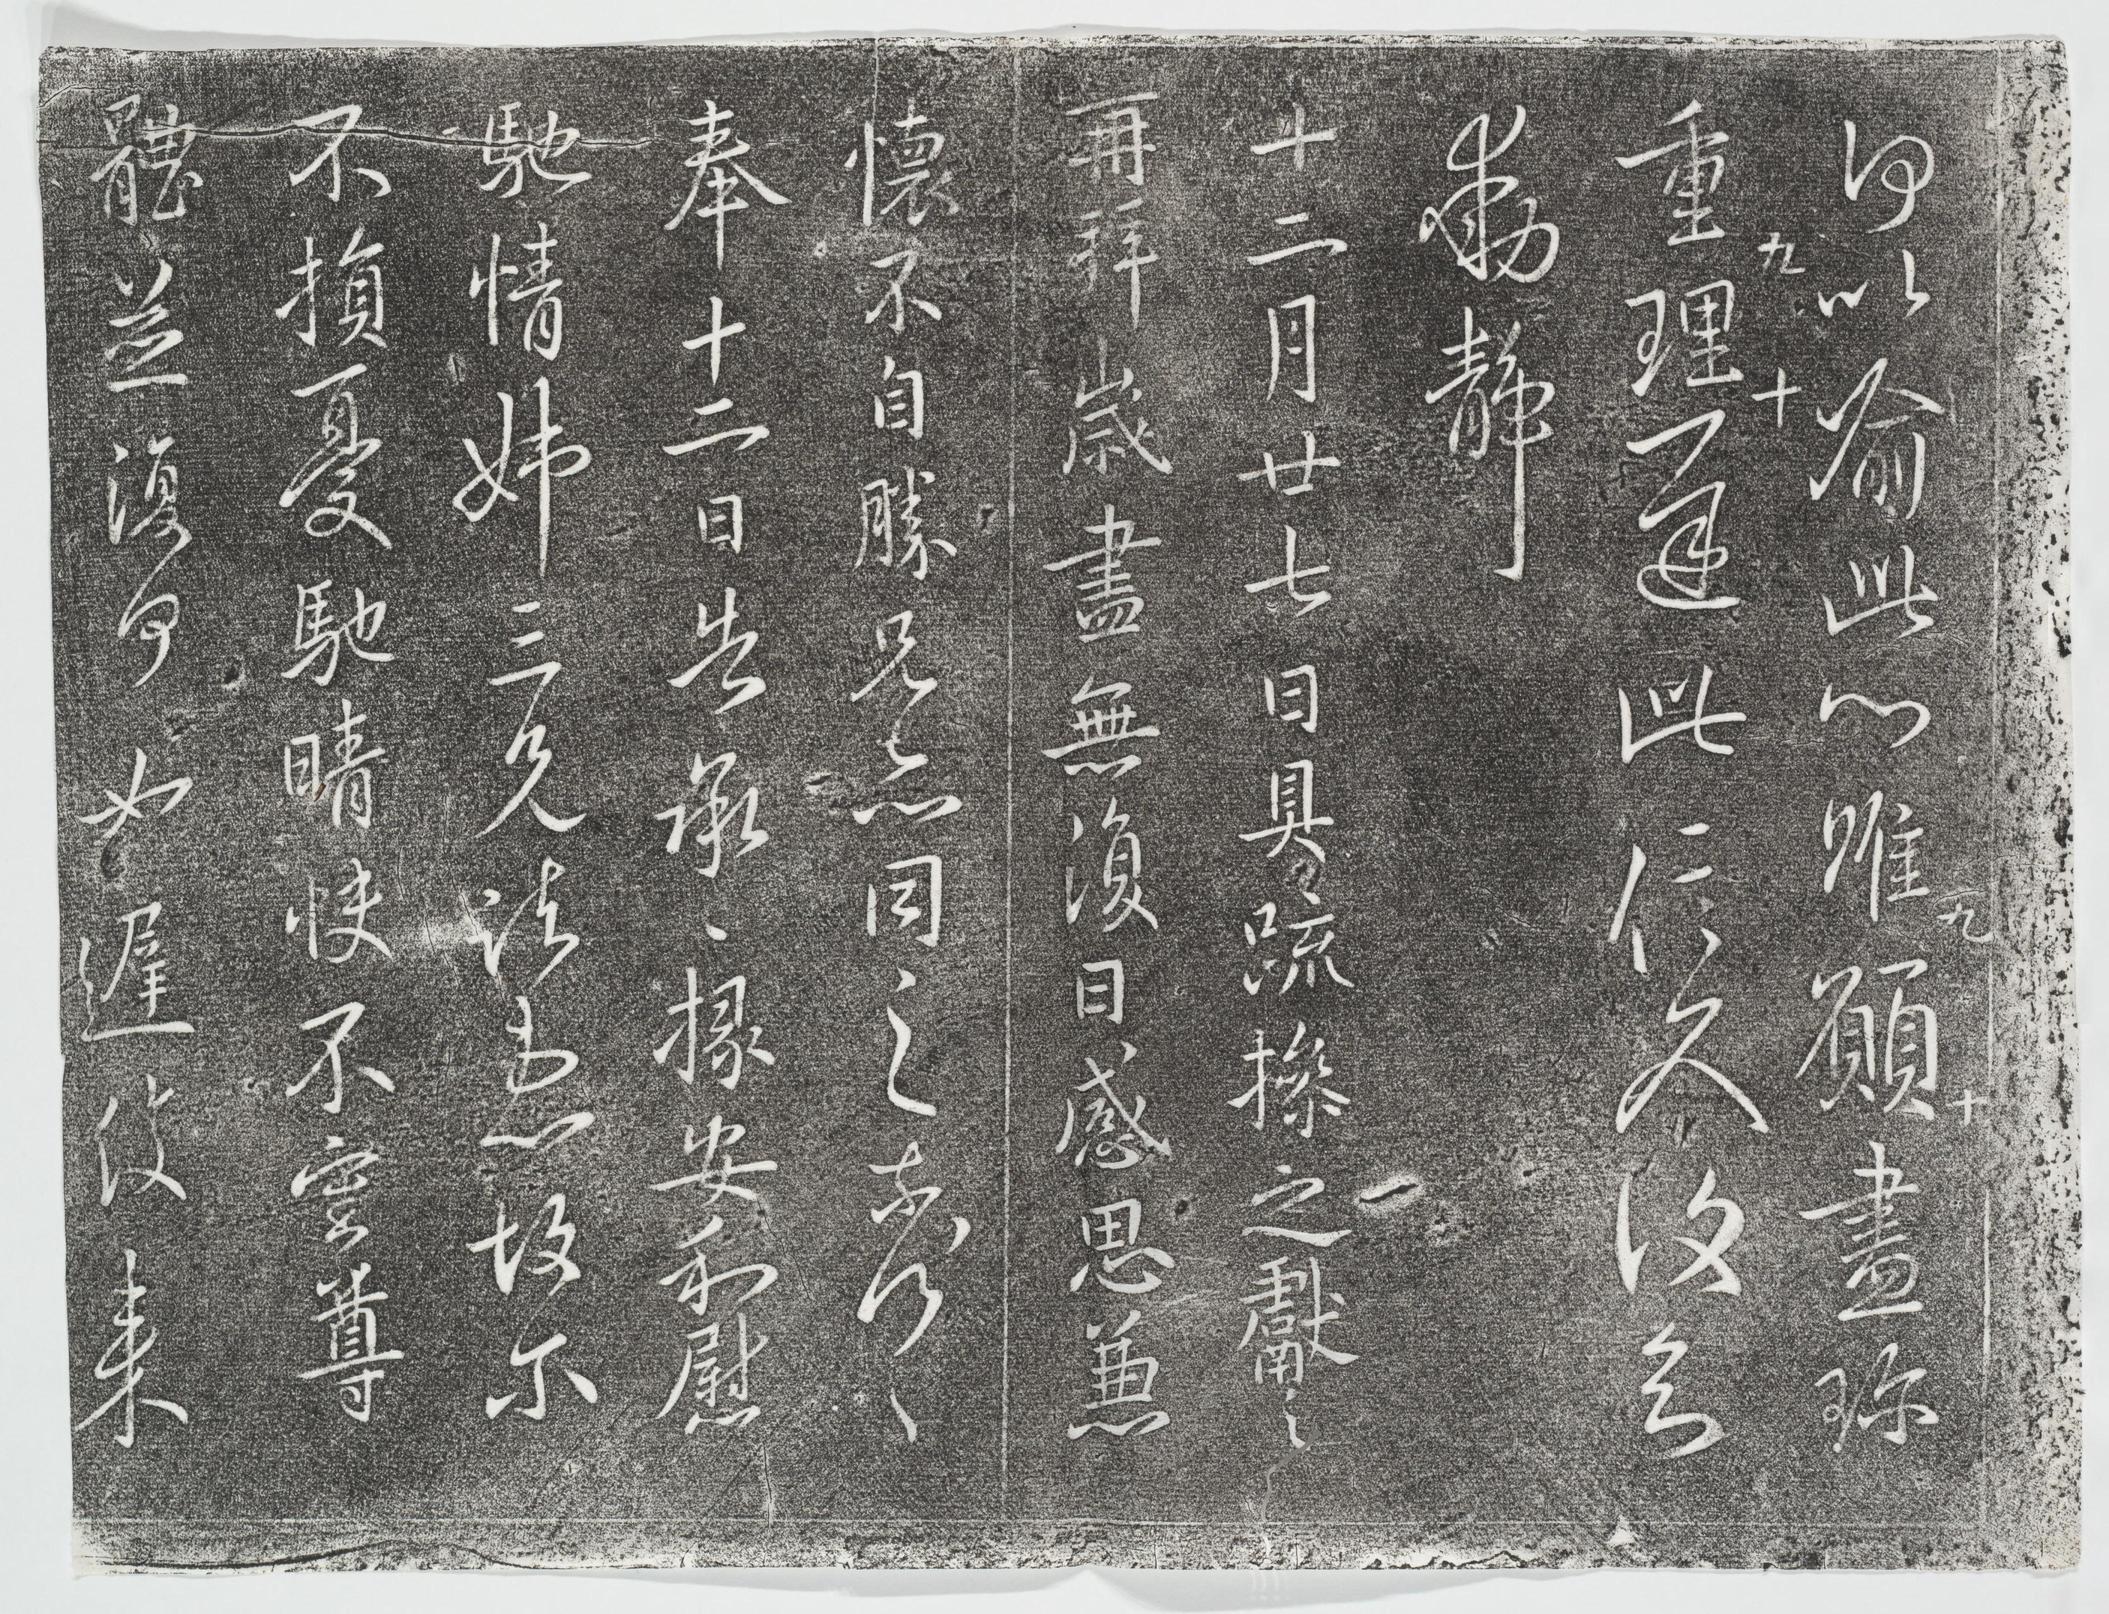 何以喻此心唯願盡珍
九 十
重理遲此信反復知
九 十
動靜
十二月廿七日具疏操之獻之
再拜歲盡無復日感思兼
懷不自勝兄亦同之奈何〻
奉十二日告承〻掾安和慰
馳情姊三兄諸患故尔
不損憂馳晴快不審尊
體並復何如遲復来